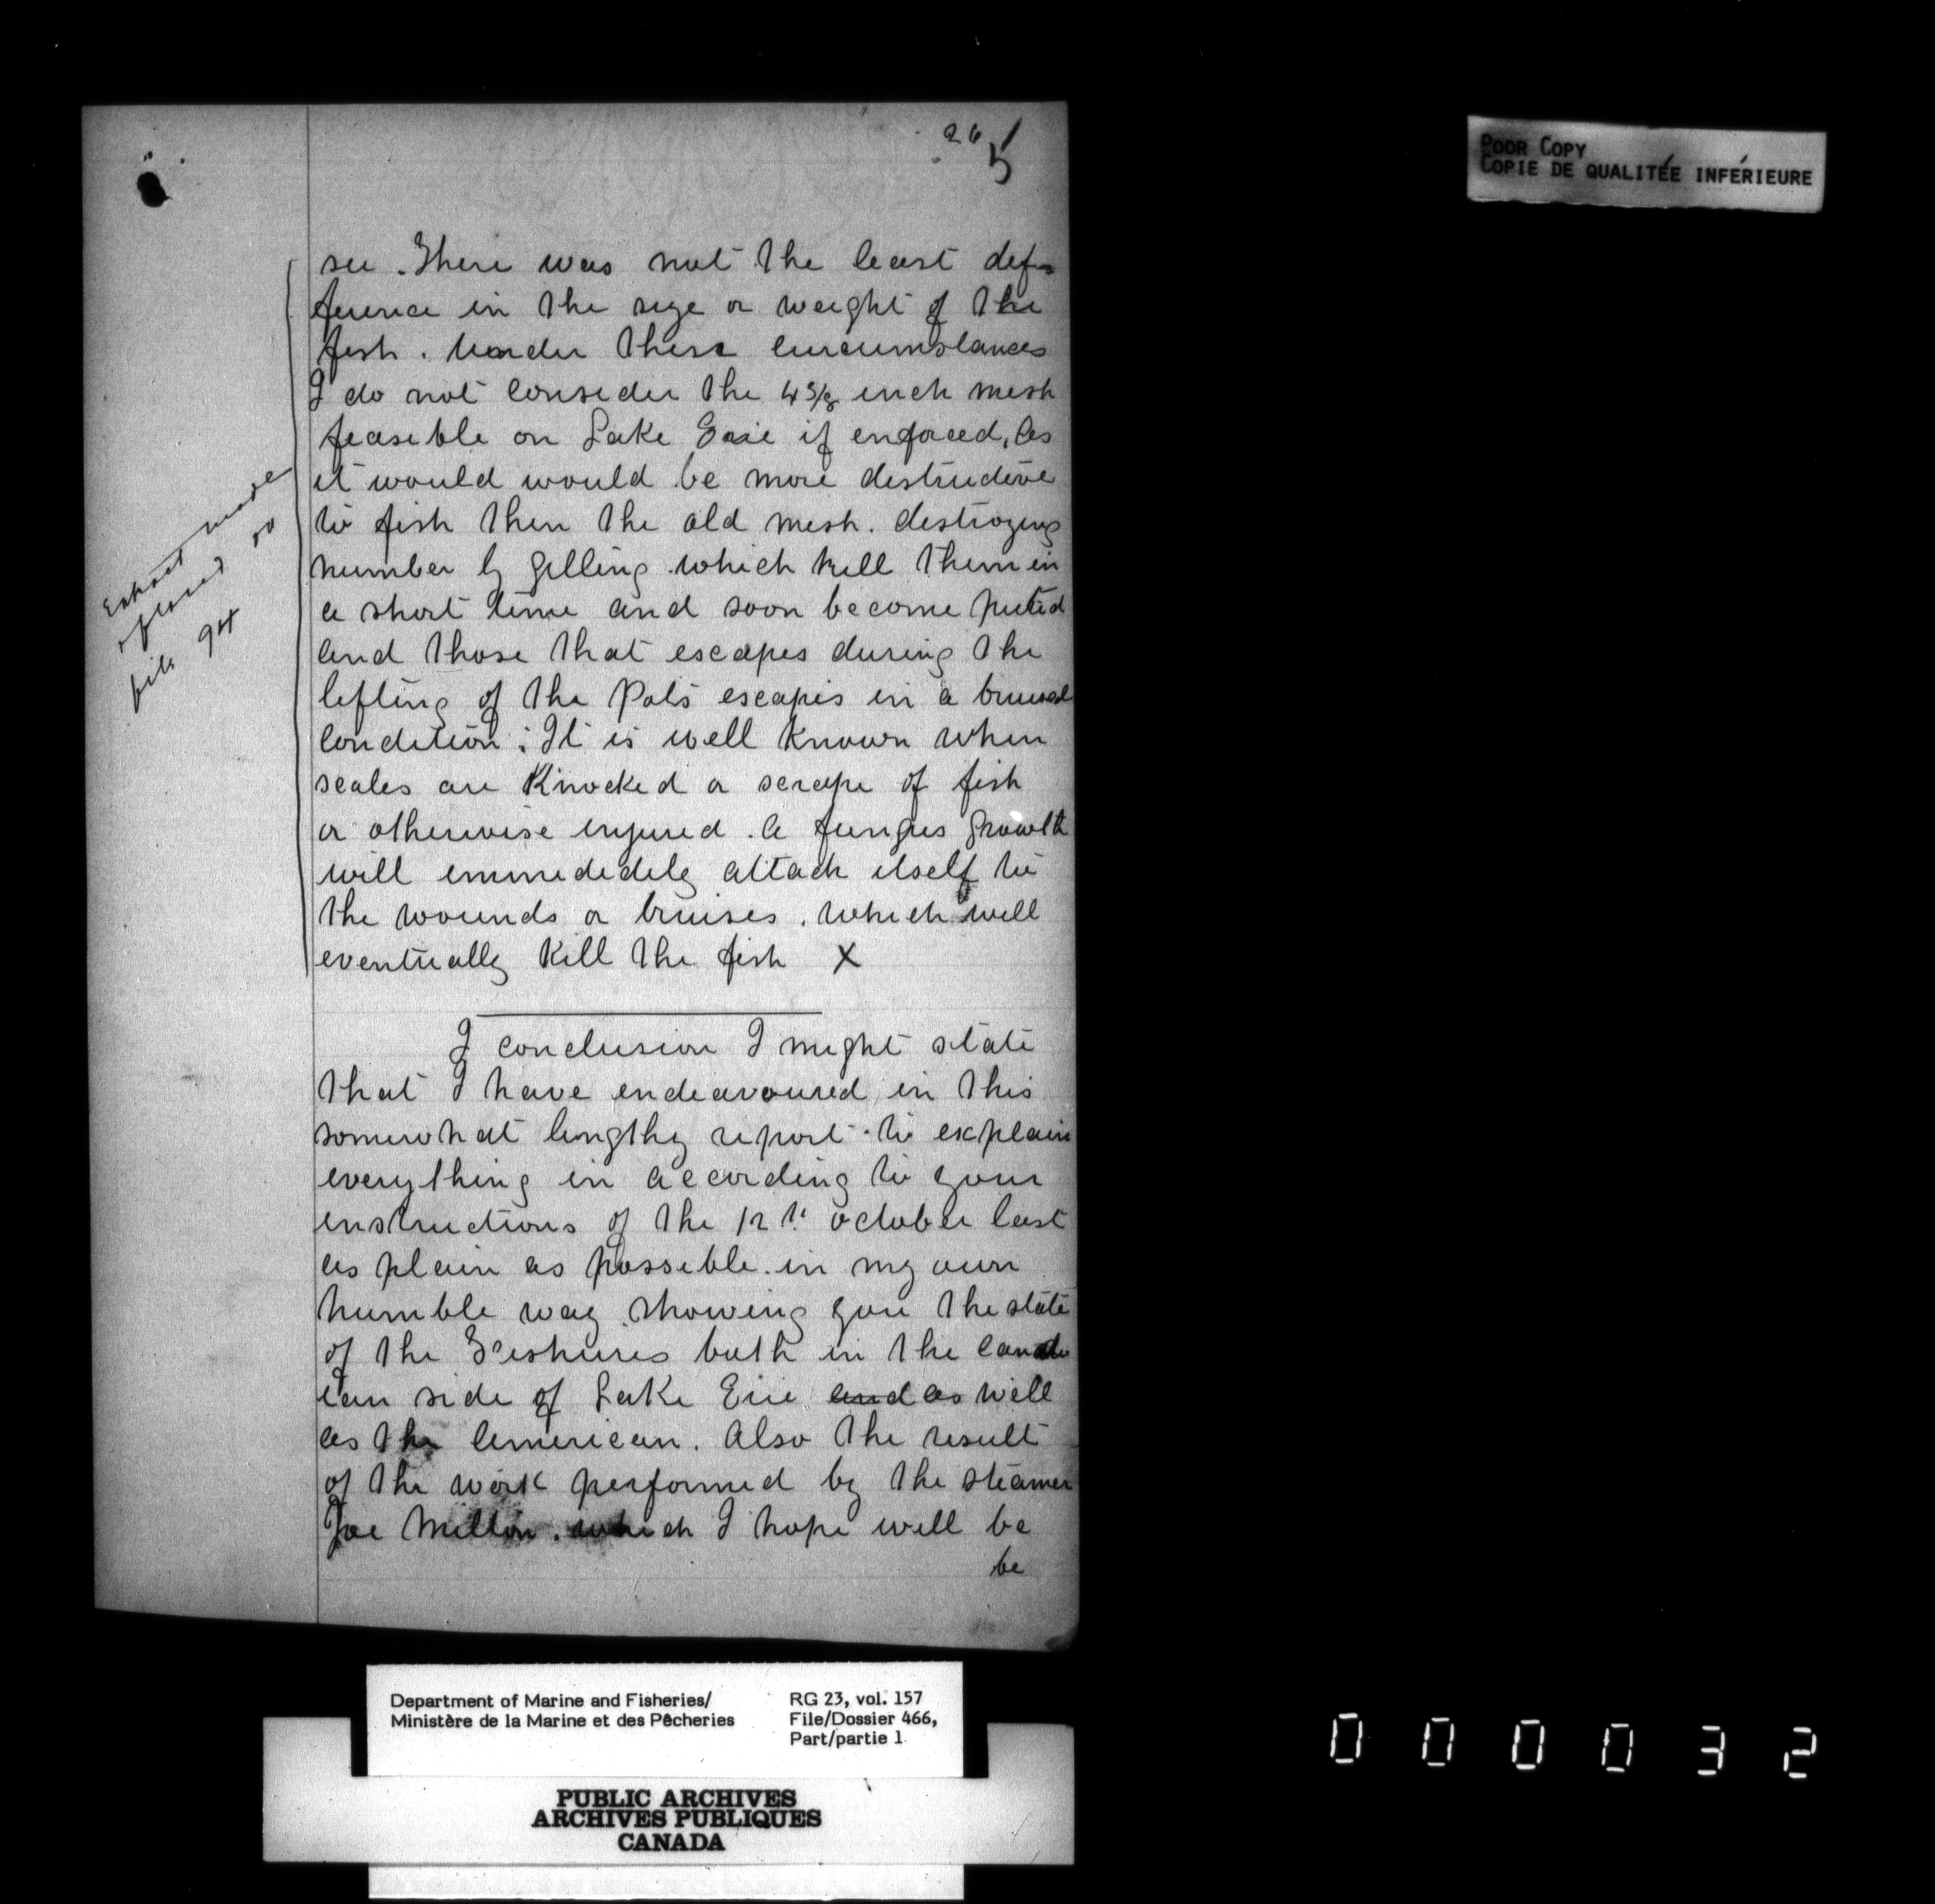 26
5
see. There was not the least def-
ference in the size or weight of the
fish. Under these circumstances
I do not consider the 4 3/8 inch mesh
feaseble on Lake Erie if enforced, as
it would would be more destructive
to fish then the old mesh. destroying
number by gelling which kill them in
a short time and soon become putrid
and those that escapes during the
lifting of the Pots escapes in a bruised
condition; It is well known when
scales are Knocked or scrape of fish
or otherwise enjured. A fungus growth
will immededely attach itself to
the wounds or bruises. which will
eventually Kill the fish X
I conclusion I might state
that I have endeavoured in this
somewhat lengthy report to explain
everything in according to your
instructions of the 12th october last
as plain as possible in my own
humble way. showing you the state
of the Feisheries both in the Canad
ian side of Lake Erie and as well
as the American. Also the result
of the work performed by the steamer
Joe Milton. which I hope will be
be
Extract made
& placed on
file 94
POOR COPY
COPIE DE QUALITÉE INFÉRIEURE
Department of Marine and Fisheries/
Ministère de la Marine et des Pêcheries
RG 23, vol. 157
File/Dossier 466,
Part/partie 1
PUBLIC ARCHIVES
ARCHIVES PUBLIQUES
CANADA
000032